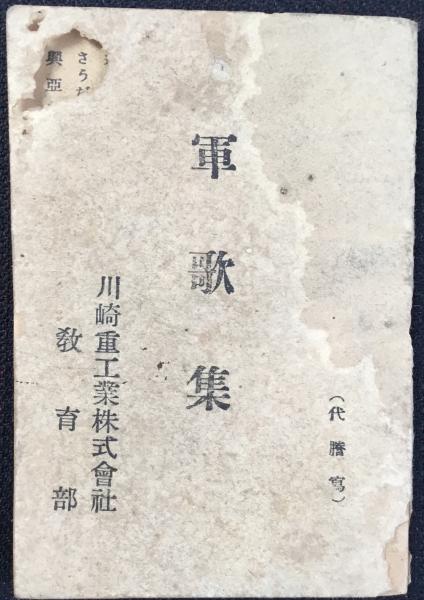 （代謄寫）
軍歌集
川崎重工業株式會社
教育部
さうだ
興亞